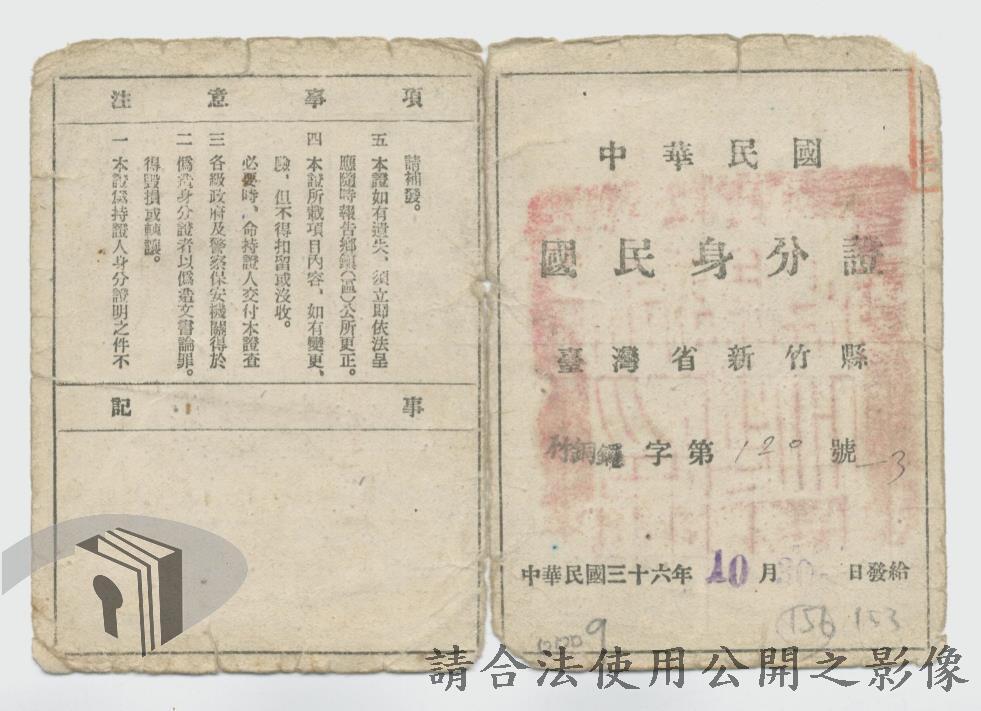 中華民國
國民身分證
臺灣省新竹縣
竹銅鑼字第120號-3
中華民國三十六年10月30日發給
156 153
9
注意事項
一 本證爲持證人身分證明之件不
得毀損或轉讓。
二 僞造身分證者以僞造文書論罪。
三 各級政府及警察保安機關得於
必要時、命持證人交付本證查
驗、但不得扣留或沒收。
四 本證所載項目內容、如有變更、
應隨時報告鄉鎮(區)公所更正。
五 本證如有遺失、須立即依法呈
請補發。
記事
請合法使用公開之影像